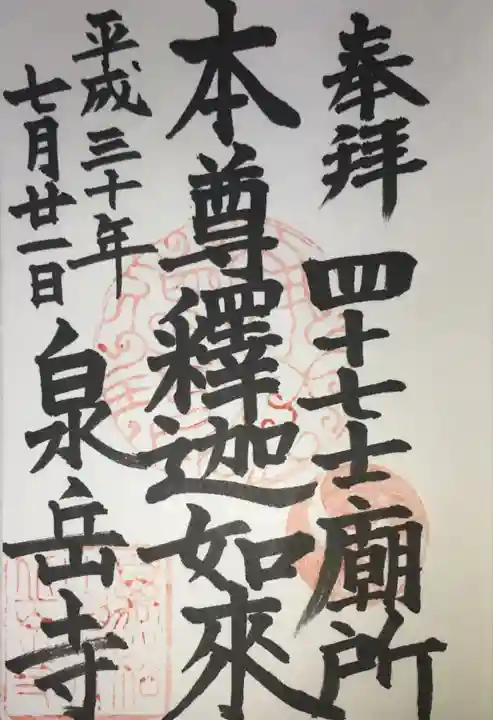 奉拜 四十七士廟所
本尊釋迦如來
平成三十年
七月廿一日
泉岳寺